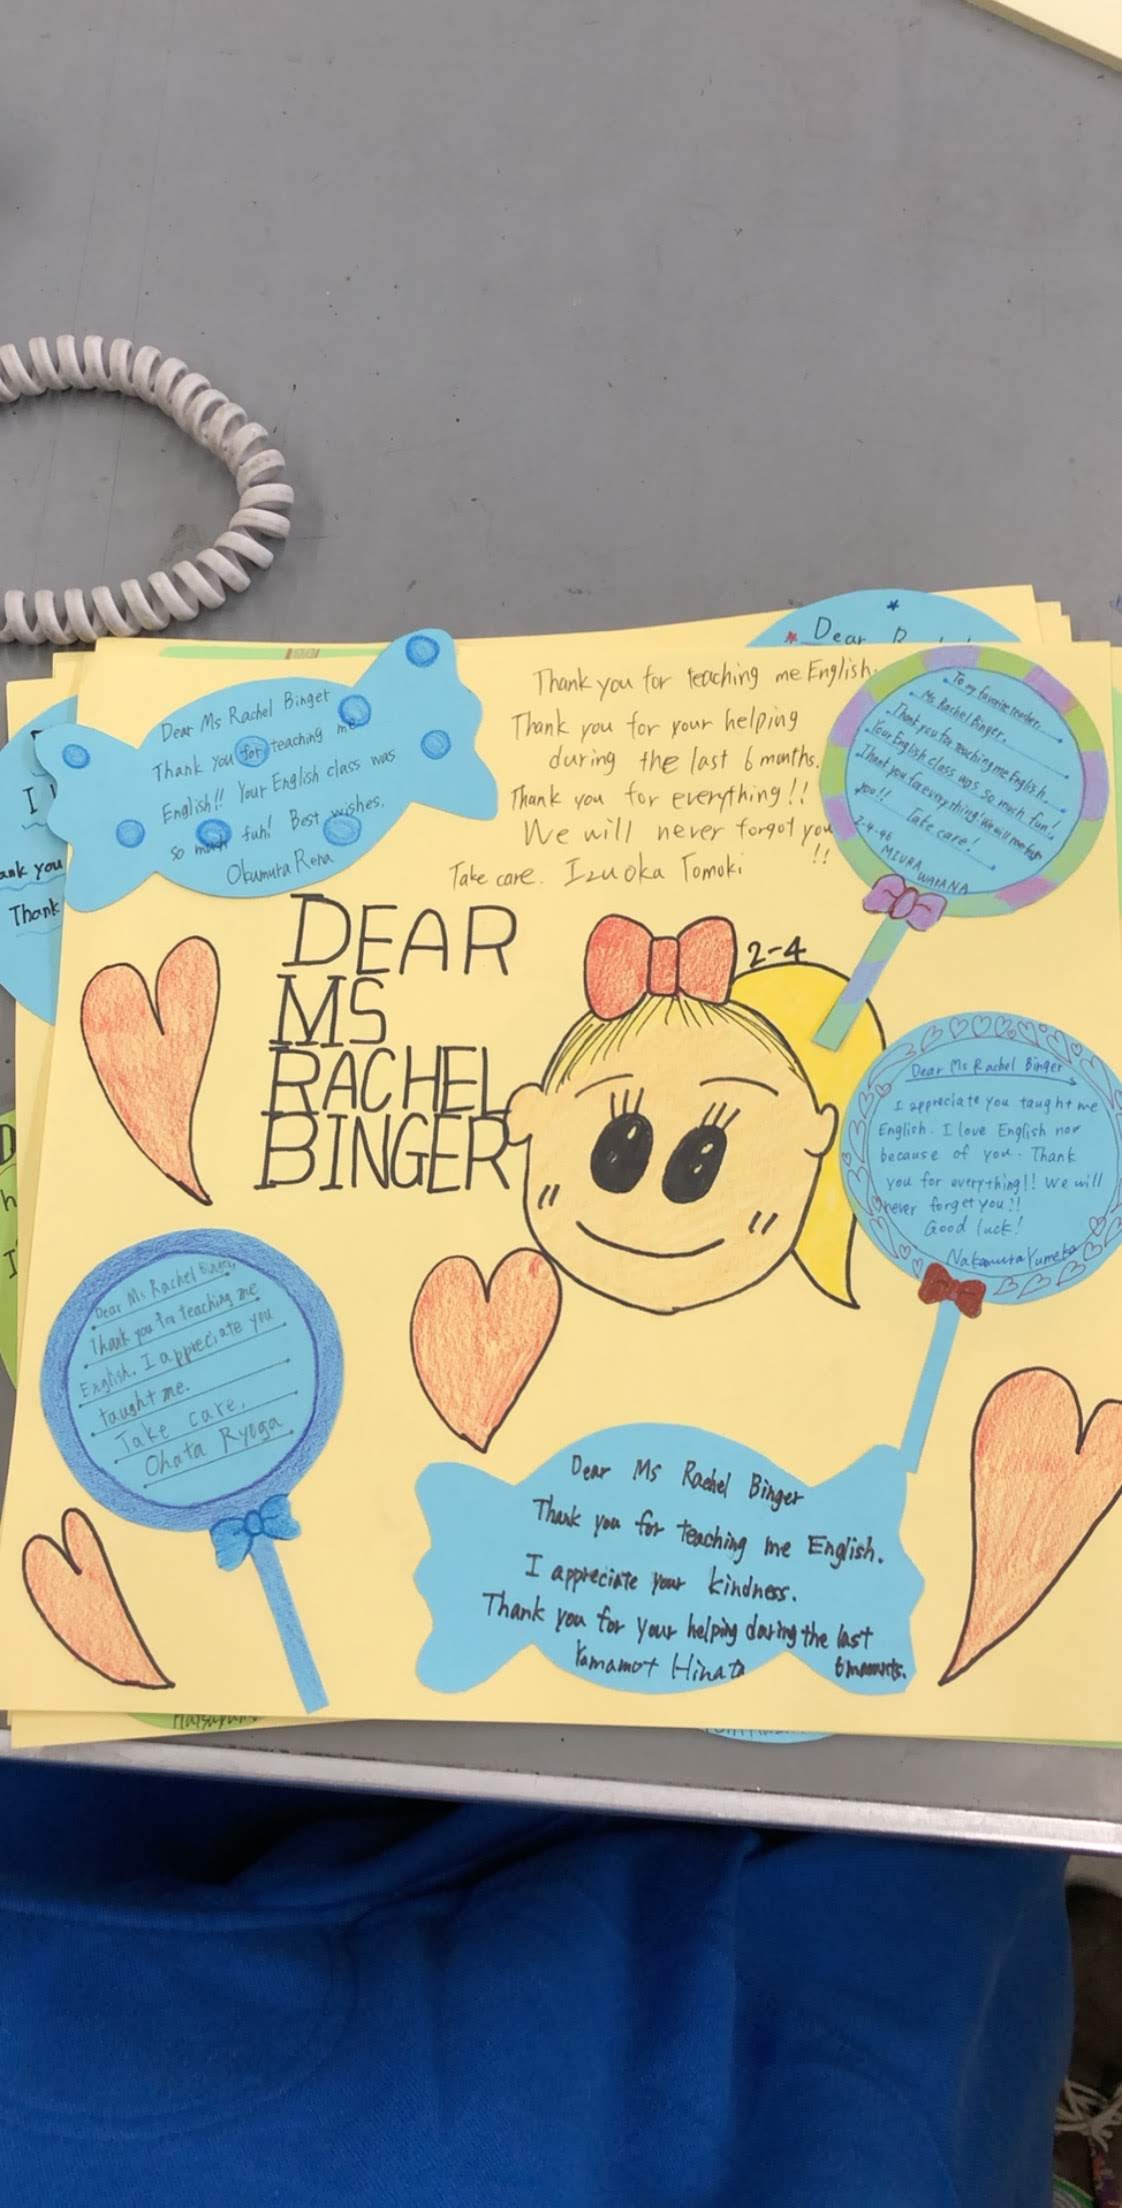 Dear Ms Rachel Binget
Thank you for teaching me
English!! Your English class was
so much fuh! Best wishes.
Okumura Rena
Thank you for teaching me English.
Thank you for your helping
during the last 6 months.
Thank you for everything!!
We will never forgot you
!!
Take care. Izuoka Tomoki
To my favorite teacher.
Ms Rachel Binger.
Thank you for teaching me English.
Your English class was so much fun!
Thank you for everything! We will never
you!! Take care!
2-4-46
MIURA
WAKANA
DEAR
MS
RACHEL
BINGER
2-4
Dear Ms Rachel Binger
I appreciate you taught me
English. I love English nor
because of you. Thank
you for everything!! We will
never forget you!!
Good luck!
Nakamura Yumeka
Dear Ms Rachel Binger,
Thank you for teaching me
English. I appreciate you
taught me.
Take care,
Ohata Ryoga
Dear Ms Rachel Binger
Thank you for teaching me English.
I appreciate your kindness.
Thank you for your helping during the last
6
Yamamot Hinata
Dear
I
ank you
Thank